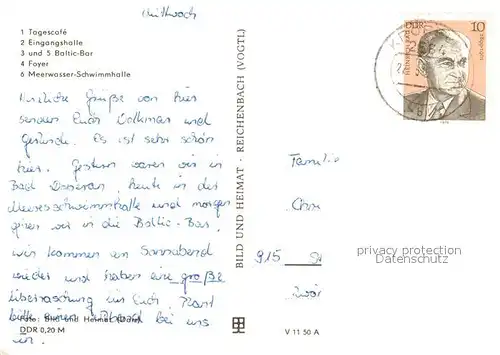 Mittwoch
1 Tagescafé
2 Eingangshalle
3 und 5 Baltic-Bar
4 Foyer
6 Meerwasser-Schwimmhalle
Herzliche Grüße von hier
senden Euch Volkmar und
Es ist sehr schön
hier. Gestern waren wir in
Bad Doberan, heute in der
Meeresschwimmhalle und morgen
gehen wir in die Baltic-Bar.
Wir kommen am Sonnabend
wieder und haben eine große
Überraschung für Euch. Plant
bitte einen Abend bei uns
ein.
Foto: Bild und Heimat
DDR 0,20 M
BILD UND HEIMAT · REICHENBACH (VOGTL)
V 11 50 A
DDR 10
Familie
915
privacy protection
Datenschutz